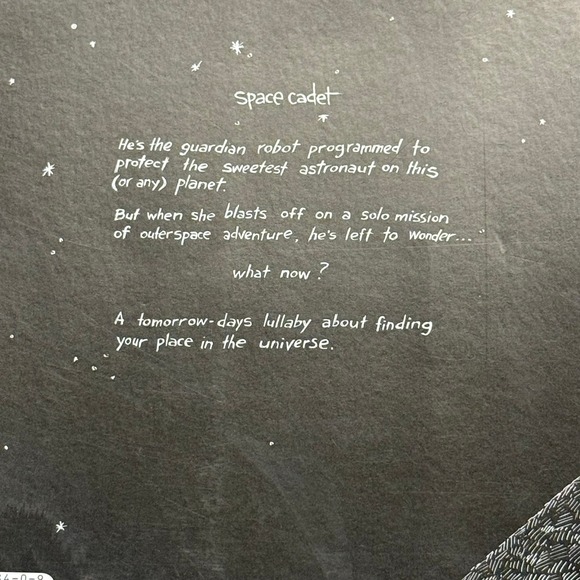 space cadet
He's the guardian robot programmed to
protect the sweetest astronaut on this
(or any) planet.
But when she blasts off on a solo mission
of outerspace adventure, he's left to wonder...
what now?
A tomorrow-days lullaby about finding
your place in the universe.
4-0-9